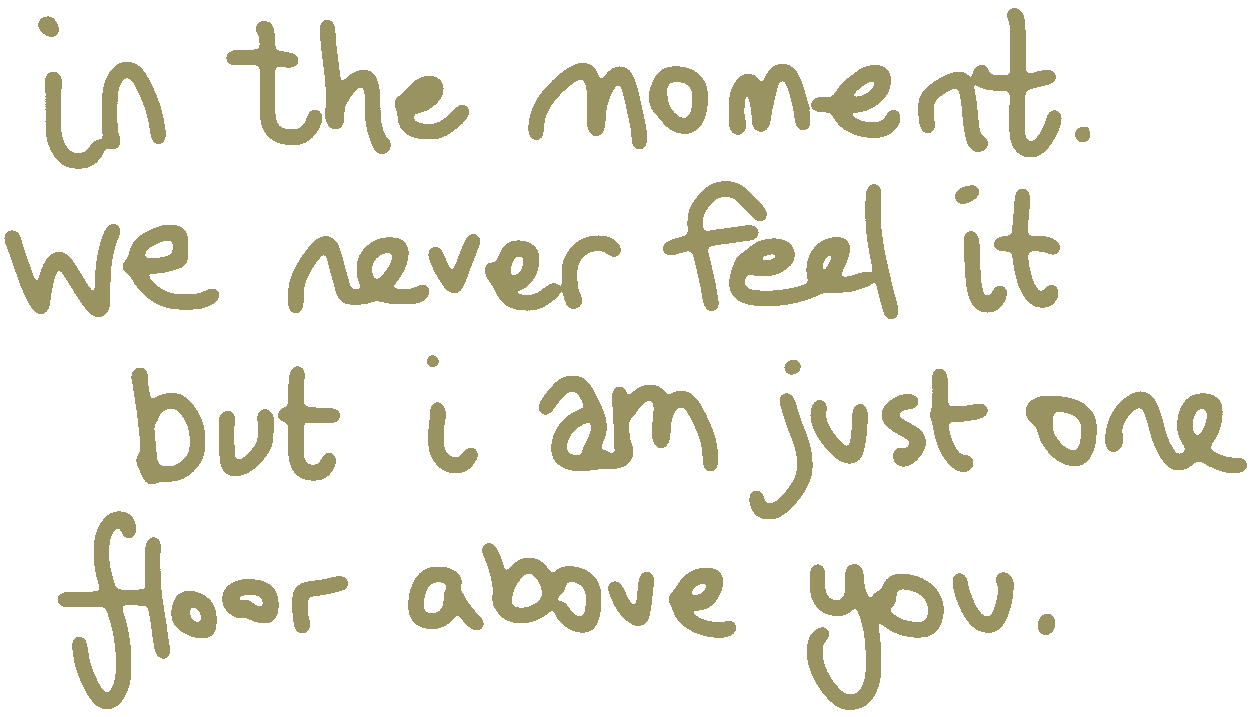 in the moment.
we never feel it
but i am just one
floor above you.